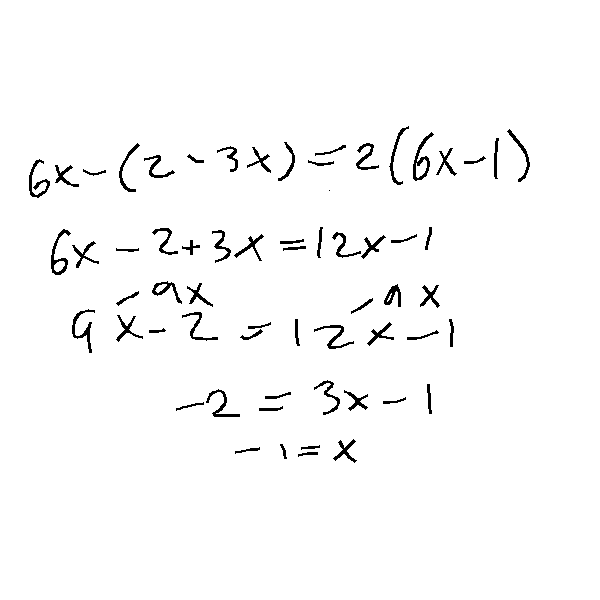 6x-(2-3x)=2(6x-1)
6x-2+3x=12x-1
-9x -9x
9x-2=12x-1
-2=3x-1
-1=x